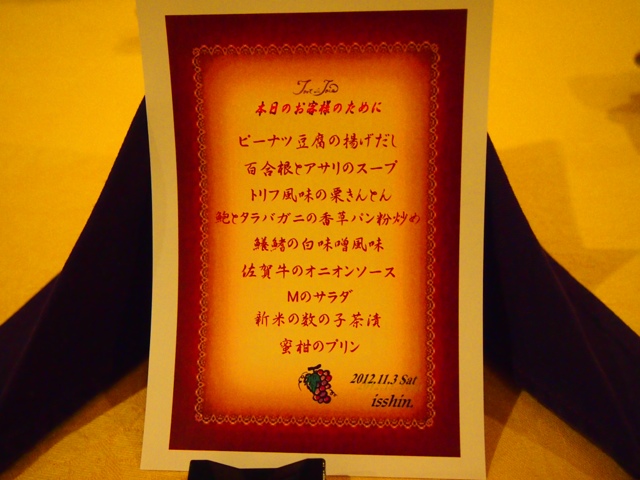 本日のお客様のために
ピーナツ豆腐の揚げだし
百合根とアサリのスープ
トリフ風味の栗きんとん
鮑とタラバガニの香草パン粉炒め
鱶鰭の白味噌風味
佐賀牛のオニオンソース
Mのサラダ
新米の数の子茶漬
蜜柑のプリン
2012,11.3 Sat
isshin.